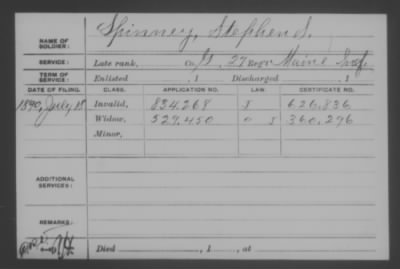 NAME OF SOLDIER: Spinney, Stephen S.
SERVICE: Late rank, Co. G, 27 Reg't Maine Inf.
TERM OF SERVICE: Enlisted , 1 Discharged , 1
DATE OF FILING. CLASS. APPLICATION NO. LAW. CERTIFICATE NO.
1890, July 18 Invalid, 834.268 J 626.836
Widow, 529.450 O J 360.296
Minor,
ADDITIONAL SERVICES:
REMARKS:
Died , 1 , at